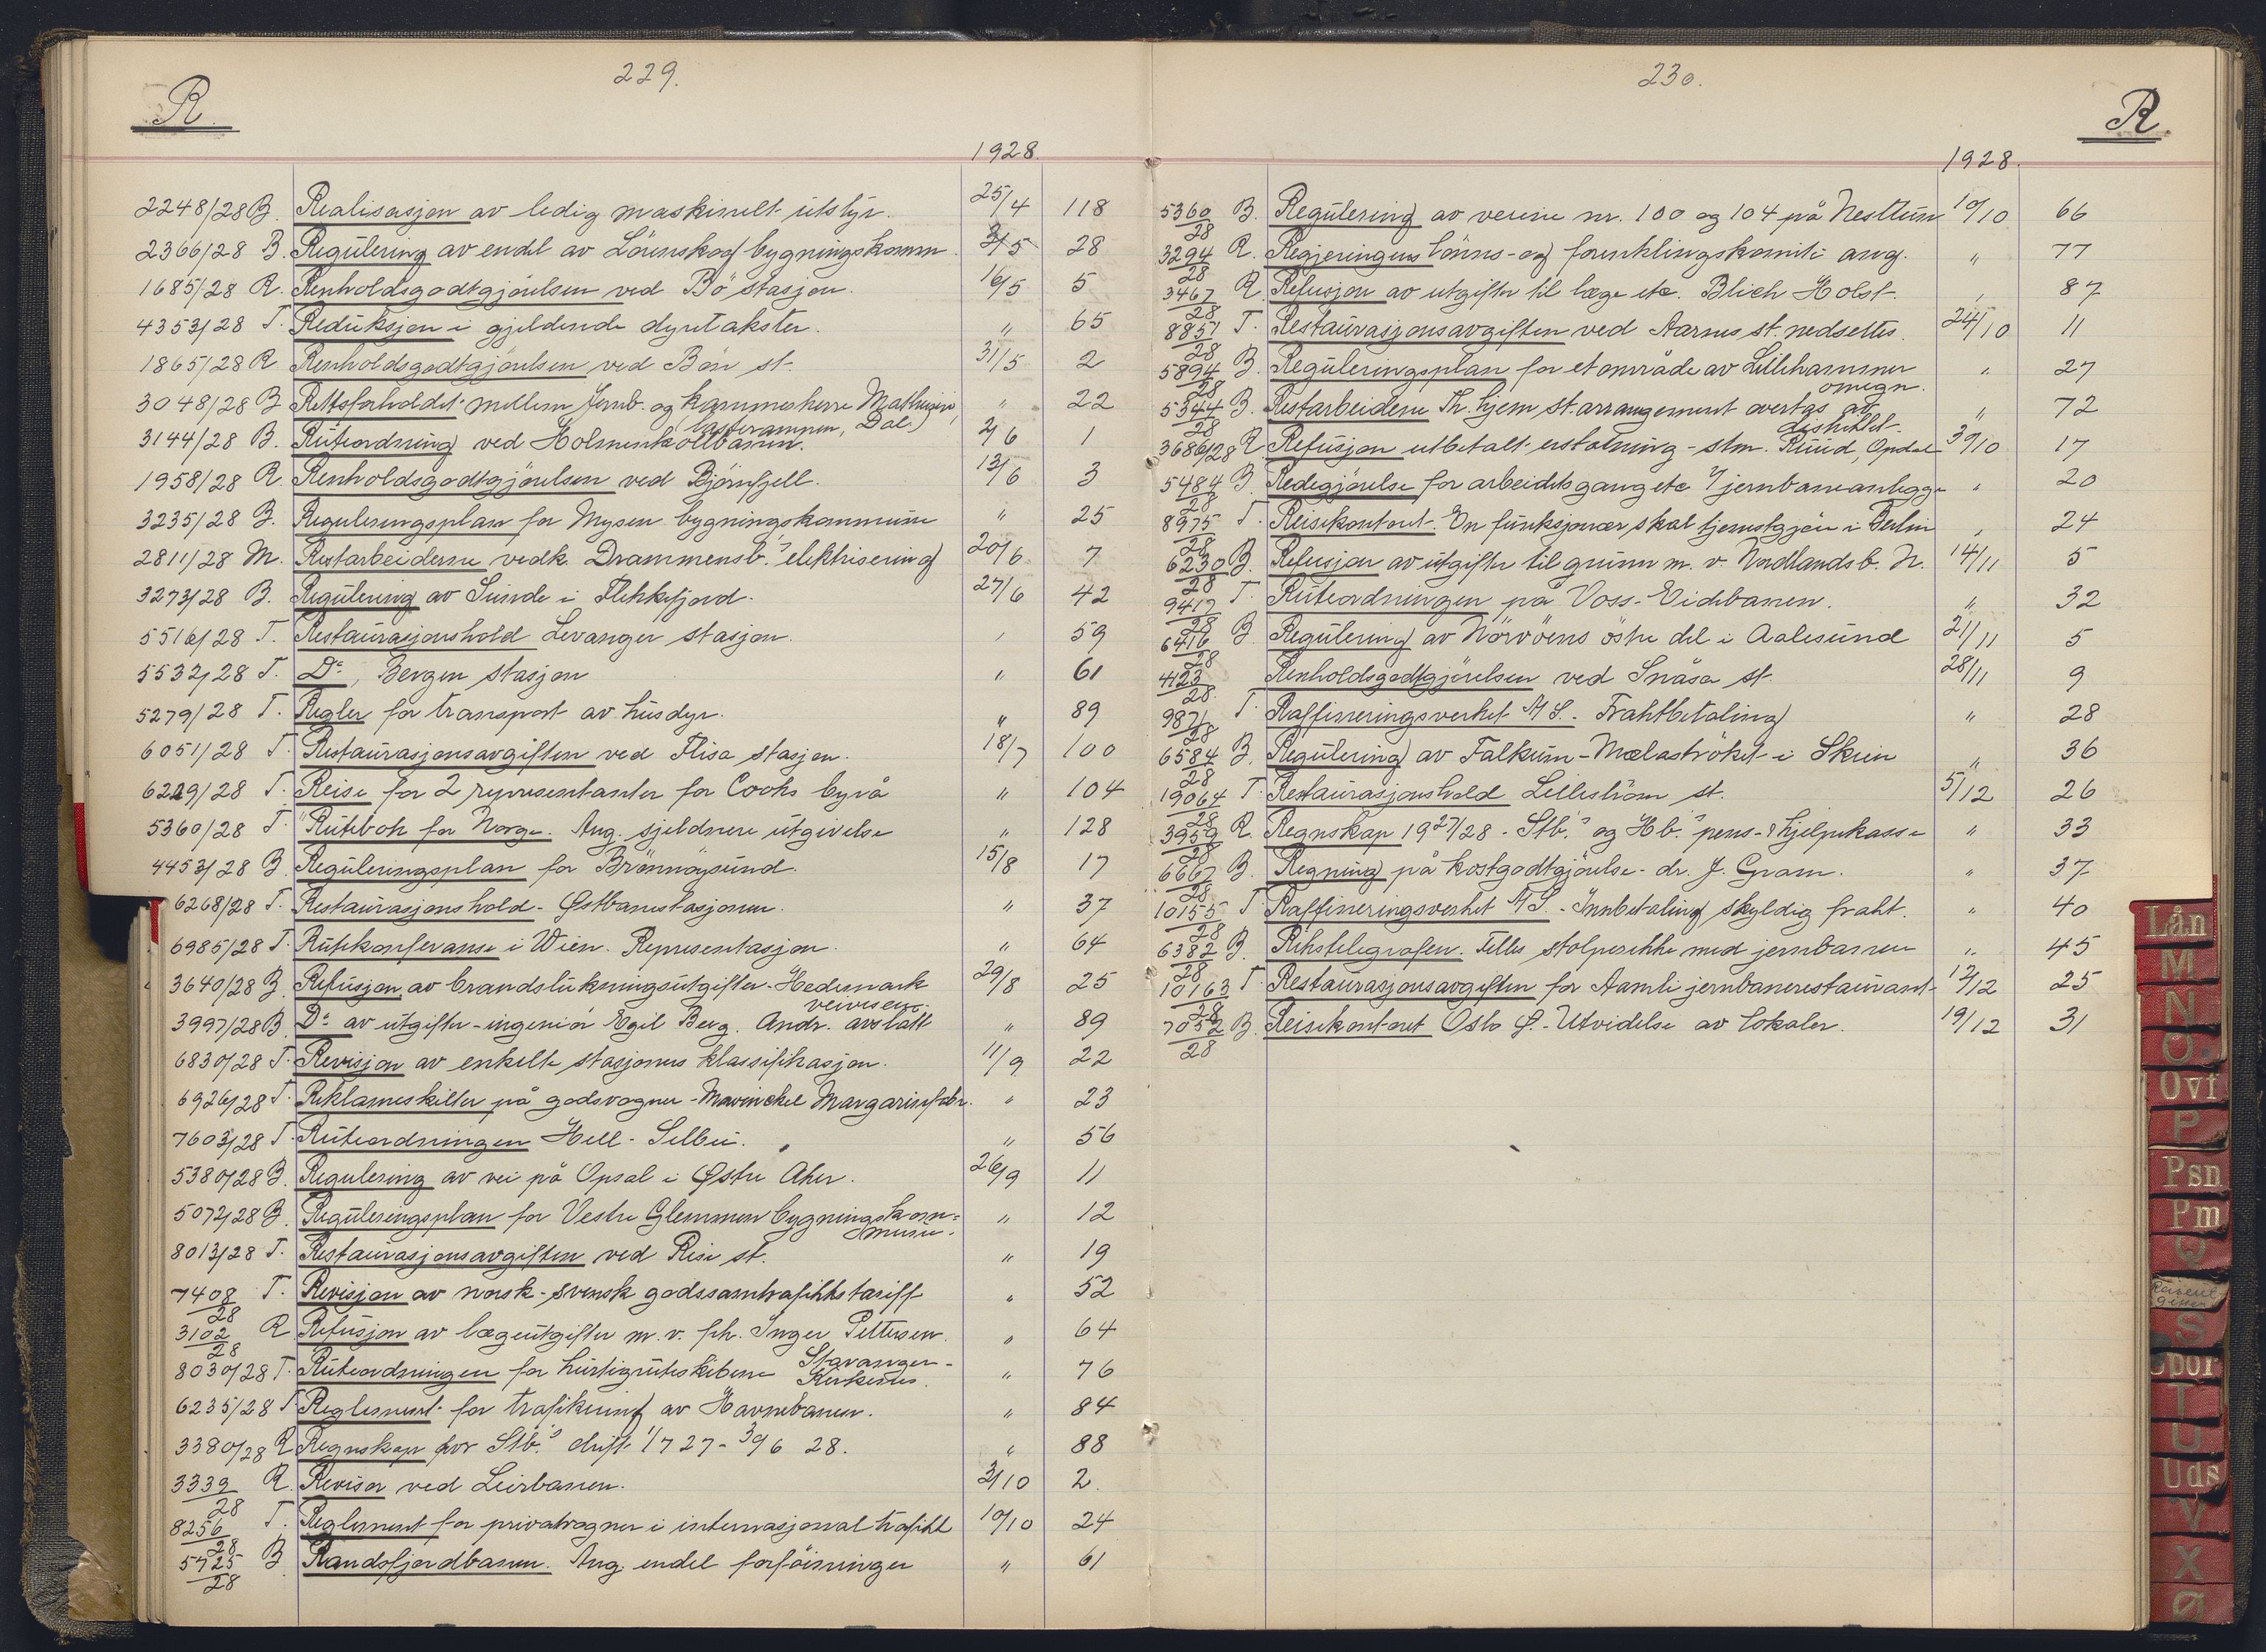 229.
R
1928.
2248/28 B. Realisasjon av ledig maskinelt utstyr. 25/4 118
2366/28 B. Regulering av endel av Lörenskog bygningskomm. 2/5 28
1685/28 R. Renholdsgodtgjörelsen ved Bö stasjon. 16/5 5
4353/28 T. Reduksjon i gjeldende dyretakster. " 65
1865/28 R. Renholdsgodtgjörelsen ved Bön st. 31/5 2
3048/28 B. Rettsforholdet mellem Jernb. og kammerherre Mathiesen, " 22
lasterampen, Dal.
3144/28 B. Ruteordning ved Holmenkollbanen. 2/6 1
1958/28 R. Renholdsgodtgjörelsen ved Björnfjell. 13/6 3
3235/28 B. Reguleringsplan for Mysen bygningskommune " 25
2811/28 M. Restarbeiderne vedk. Drammensb.s elektrisering 20/6 7
3273/28 B. Regulering av Sunde i Flekkefjord. 27/6 42
5516/28 T. Restaurasjonshold Levanger stasjon. " 59
5532/28 T. Do, Bergen stasjon " 61
5279/28 T. Regler for transport av husdyr. " 89
6051/28 T. Restaurasjonsavgiften ved Flisa stasjon. 18/7 100
6229/28 T. Reise for 2 representanter for Cooks byrå " 104
5360/28 T. "Rutebok for Norge. Ang. sjeldnere utgivelse " 128
4453/28 B. Reguleringsplan for Brönnöysund. 15/8 17
6268/28 T. Restaurasjonshold - Østbanestasjonen. " 37
6985/28 T. Rutekonferanse i Wien. Representasjon. " 64
3640/28 B. Refusjon av brandslukningsutgifter - Hedemark 29/8 25
veivesen.
3997/28 B. Do av utgifter - ingeniör Egil Berg. Andr. avslått " 89
6830/28 T. Revisjon av enkelte stasjoners klassifikasjon. 11/9 22
6926/28 T. Reklameskilter på godsvogner - Margarinfabr. " 23
7603/28 T. Ruteordningen Hell - Selbu. " 56
5380/28 B. Regulering av vei på Opsal i Østre Aker. 26/9 11
5072/28 B. Reguleringsplan for Vestre Glemmen bygningskom= " 12
mune.
8013/28 T. Restaurasjonsavgiften ved Rise st. " 19
7408/28 T. Revisjon av norsk-svensk godssamtrafikktariff " 52
3102/28 R. Refusjon av lægeutgifter m.v. frk. Inger Pettersen. " 64
8030/28 T. Ruteordningen for hurtigruteskibene Stavanger - " 76
Kirkenes.
6235/28 T. Reglement for trafikering av Havnebanen. " 84
3380/28 R. Regnskap for Stb.s drift 1/7 27 - 30/6 28. " 88
3339/28 R. Revisor ved Leirbanen. 3/10 2.
8256/28 T. Reglement for privatvogner i internasjonal trafikk 10/10 24
5725/28 B. Randsfjordbanen. Ang. endel forföininger " 61
230.
R
1928.
5360/28 B. Regulering av veiene nr. 100 og 104 på Nesttun 10/10 66
3294/28 R. Regjeringens lönns- og forenklingskomite ang. " 77
3467/28 R. Refusjon av utgifter til læge etc. Blich Holst. " 87
8851/28 T. Restaurasjonsavgiften ved Aarnes st. nedsettes. 24/10 11
5894/28 B. Reguleringsplan for et område av Lillehammer " 27
omegn.
5344/28 B. Restarbeidene Th.hjem st.arrangement overtas av " 72
distriktet.
3686/28 R. Refusjon utbetalt erstatning - stm. Ruud, Opdal 30/10 17
5484/28 B. Redegjörelse for arbeidets gang etc v/jernbaneanlegge " 20
8975/28 T. Reisekontoret. En funksjonær skal tjenestgjöre i Berlin " 24
6230/28 B. Refusjon av utgifter til grunn m.v. Nordlandsb. N. 14/11 5
9417/28 T. Ruteordningen på Voss-Eidebanen. " 32
6416/28 B. Regulering av Nörvöens östre del i Aalesund 21/11 5
4123/28 Renholdsgodtgjörelsen ved Snåsa st. 28/11 9
9871/28 T. Raffineringsverket A/S. - Fraktbetaling " 28
6584/28 B. Regulering av Falkum-Mælaströket i Skien " 36
19064/28 T. Restaurasjonshold Lilleström st. 5/12 26
3959/28 R. Regnskap 1927/28 - Stb.s og Hb.s pens- & hjelpekasse " 33
6667/28 B. Regning på kostgodtgjörelse - dr. J. Gram. " 37
10155/28 T. Raffineringsverket A/S. - Innbetaling skyldig frakt. " 40
6382/28 B. Rikstelegrafen. Felles stolperekke med jernbanen " 45
10163/28 T. Restaurasjonsavgiften for Aamli jernbanerestaurant 12/12 25
7052/28 B. Reisekontoret Oslo Ø. - Utvidelse av lokaler. 19/12 31
Lån
M
N
O
Ovf
P
Psn
Pm
Q
S
Spor
T
U
Uds
V
X
Ø